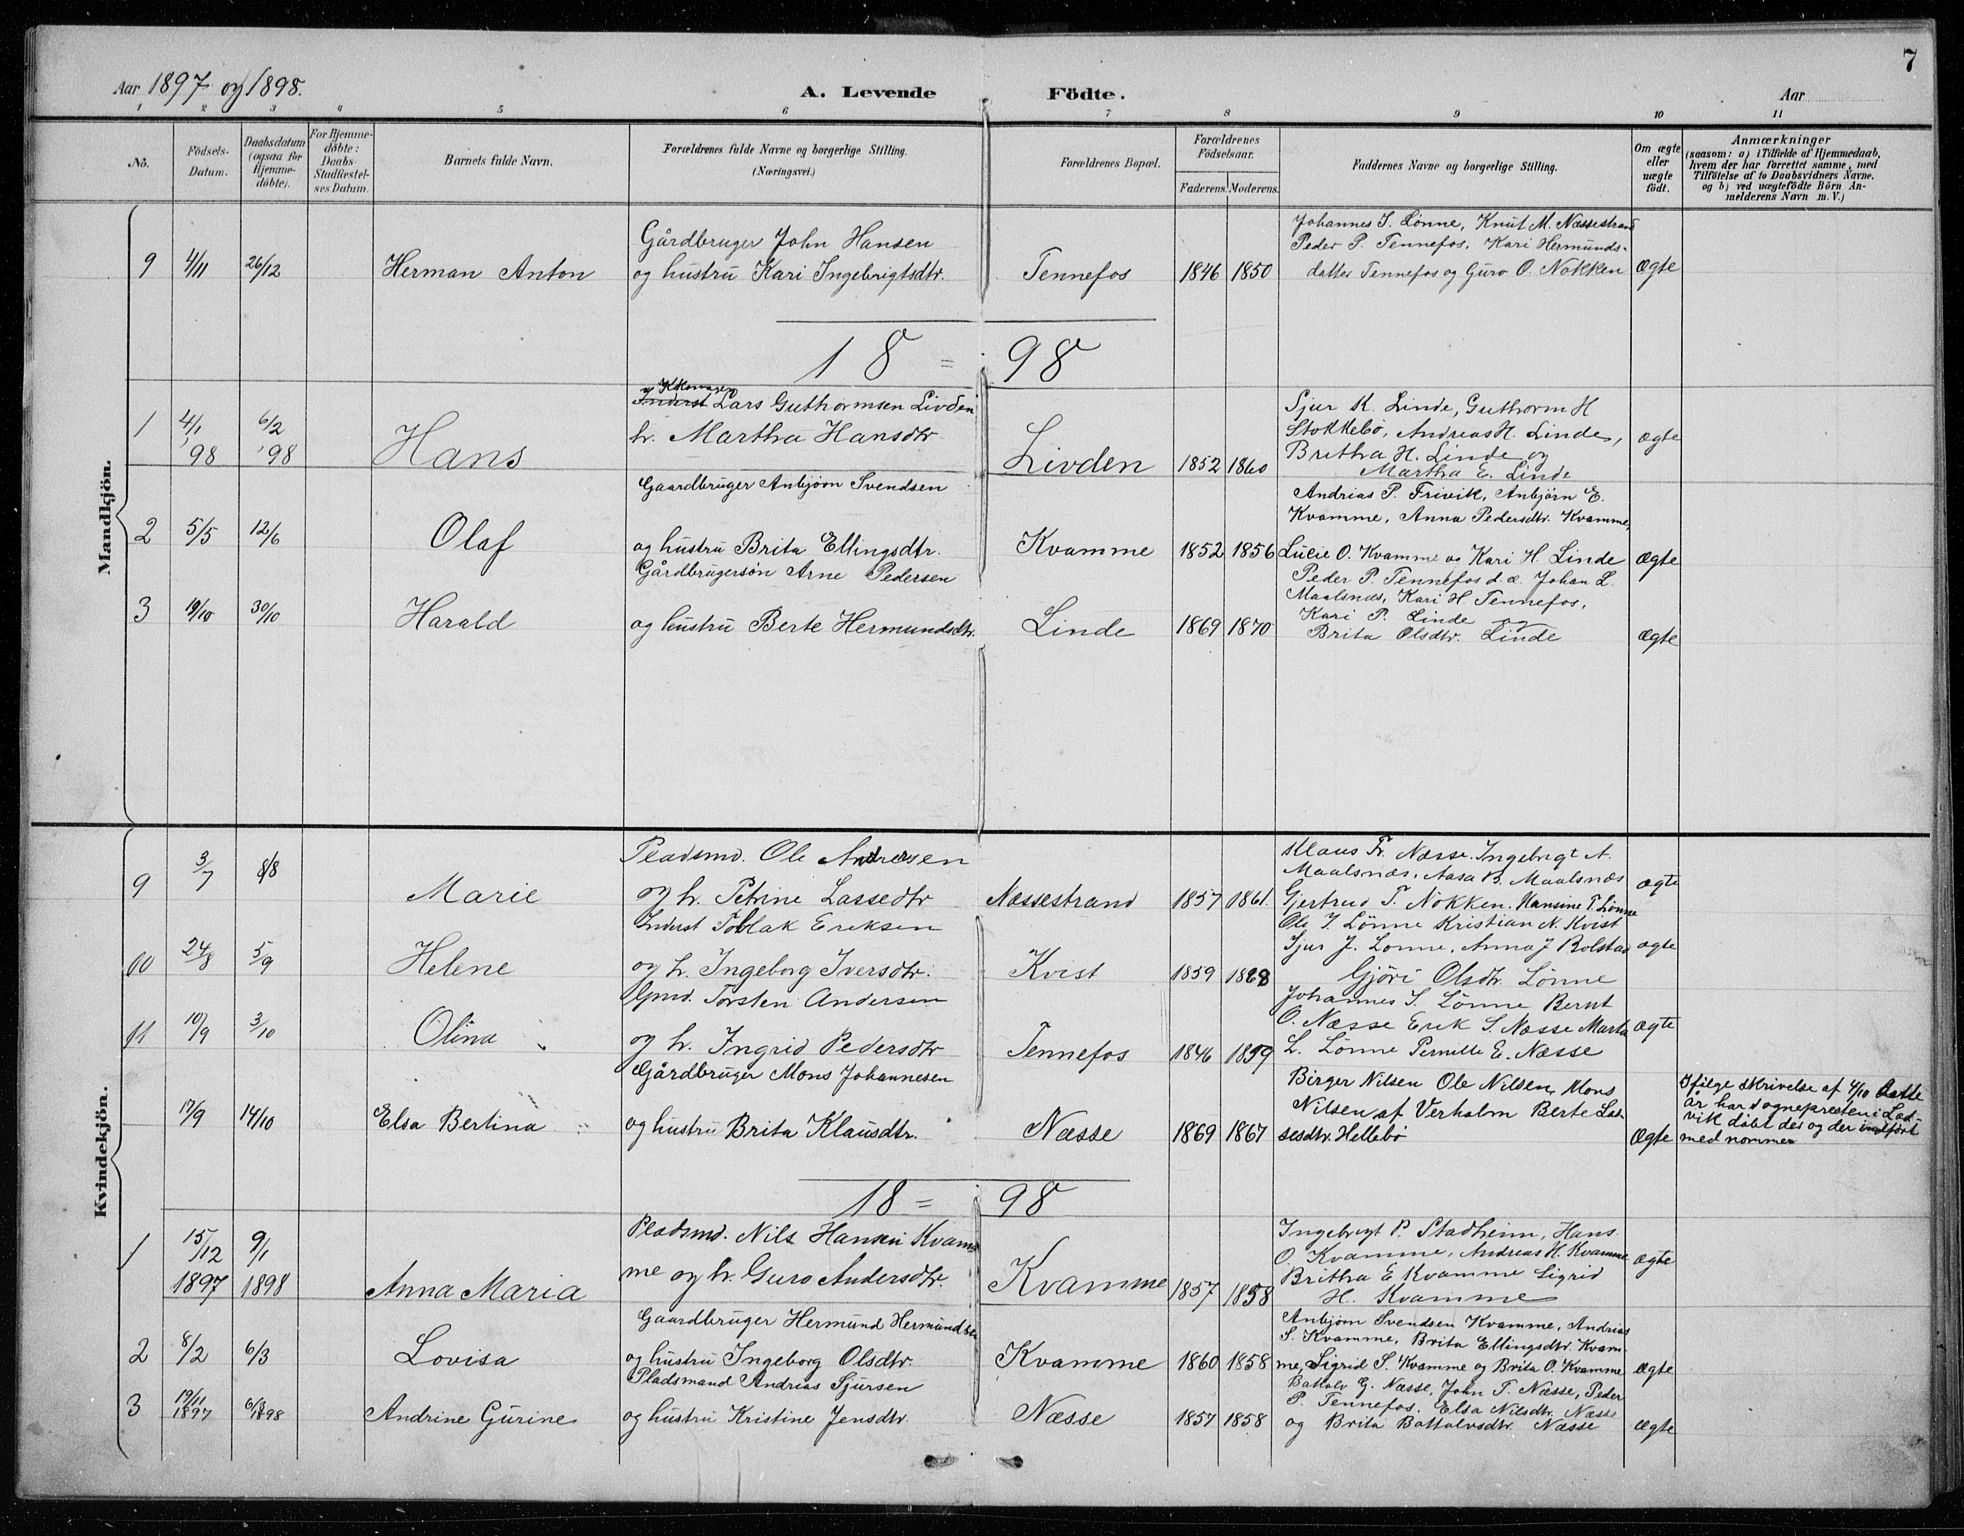 7
Aar 1897 og 1898. A. Levende Födte. Aar
1 2 3 4 5 6 7 8 9 10 11
No. Födsels-Datum. Daabsdatum (ogsaa for Hjemme-döbte). For Hjemme-döbte: Daabs-Stadfæstel-ses Datum. Barnets fulde Navn. Forældrenes fulde Navne og borgerlige Stilling. (Næringsvei.) Forældrenes Bopæl. Forældrenes Födselsaar. Faderens. Moderens. Faddernes Navne og borgerlige Stilling. Om ægte eller uægte födt. Anmærkninger (saasom: a) i Tilfælde af Hjemmedaab, hvem der har forrettet samme, med Tilföielse af to Daabsvidners Navne. og b) ved uægtefödte Börn An-melderens Navn m. V.)
Mandkjön.
Gårdbruger John Hansen
9 4/11 26/12 Herman Anton og hustru Kari Ingebrigtsdtr. Tennefos 1846 1850
Johannes S. Lønne, Knut M. Næssestrand
Peder P. Tennefos, Kari Hermunds-
datter Tennefos og Guro O. Nokken Ægte
18 = 98
Lars Guthormsen Livden
1 4/1 '98 6/2 '98 Hans h. Martha Hansdtr Livden 1852 1860
Sjur K. Linde, Guthorm H
Stokkebø, Andreas H. Linde,
Britha H. Linde og
Martha E. Linde ægte
Gaardbruger Anbjørn Svendsen
2 5/5 12/6 Olaf og hustru Brita Ellingsdtr. Kvamme 1852 1856
Andrias P. Frivik, Anbjørn E.
Kvamme, Anna Pedersdtr. Kvamme,
Lucie O. Kvamme og Kari H. Linde Ægte
Gårdbrugersøn Arne Pedersen
3 19/10 30/10 Harald og hustru Berte Hermundsdtr. Linde 1869 1870
Peder P. Tennefos d. æ. Johan L.
Maalsnæs, Kari H. Tennefos,
Kari P. Linde og
Brita Olsdtr. Linde Ægte
Kvindekjön.
Pladsmd. Ole Andersen
9 3/7 8/8 Marie og h. Petrine Lassedtr Næssestrand 1857 1861.
Klaus Fr. Næsse. Ingebrigt A.
Maalsnæs, Aasa B. Maalsnæs
Gjertrud T. Nokken. Hansine T. Lønne ægte
Inderst Eriksen
10 24/8 5/9 Helene og h. Ingeborg Iversdtr. Kvist 1859 1868
Ole J. Lønne Kristian N. Kvist
Sjur J. Lønne, Anna J Bolstad
Gjøri Olsdtr. Lønne ægte
Gmd. Torsten Andersen
11 10/9 3/10 Olina og h. Ingrid Pedersdtr Tennefos 1846 1859
Johannes S. Lønne Bernt
O. Næsse Erik S. Næsse Marta
L. Lønne Pernille E. Næsse ægte
Gårdbruger Mons Johannesen
17/9 14/10 Elsa Bertina og hustru Brita Klausdtr. Næsse 1869 1867
Birger Nilsen Ole Nilsen, Mons
Nilsen af Verholm Berte Las-
sesdtr. Hellebø Ægte
Ifølge skrivelse af 4/10 dette
år har sognepresten i Lad-
vik døbt det og der indført
med nommer
18 = 98
Pladsmd. Nils Hansen Kvam-
1 15/12 1897 9/1 1898 Anna Maria me og h. Guro Andersdtr. Kvamme 1857 1858
Ingebrigt P. Stadheim, Hans
O. Kvamme, Andreas H. Kvamme
Britha E Kvamme Sigrid
H. Kvamme ægte
Gaardbruger Hermund Hermundsen
2 8/2 6/3 Lovisa og hustru Ingeborg Olsdtr. Kvamme 1860 1858
Anbjørn Svendsen Kvamme, Andrias
S. Kvamme, Brita Ellingsdtr. Kvam-
me, Sigrid S. Kvamme og Brita O. Kvamme Ægte
Pladsmand Andrias Sjursen
3 19/11 1897 6/3 1898 Andrine Gurine og hustru Kristine Jensdtr. Næsse 1857 1858
Battolv G. Næsse, John T. Næsse, Peder
P. Tennefos, Elsa Nilsdtr. Næsse
og Brita Battolvsdtr. Næsse Ægte